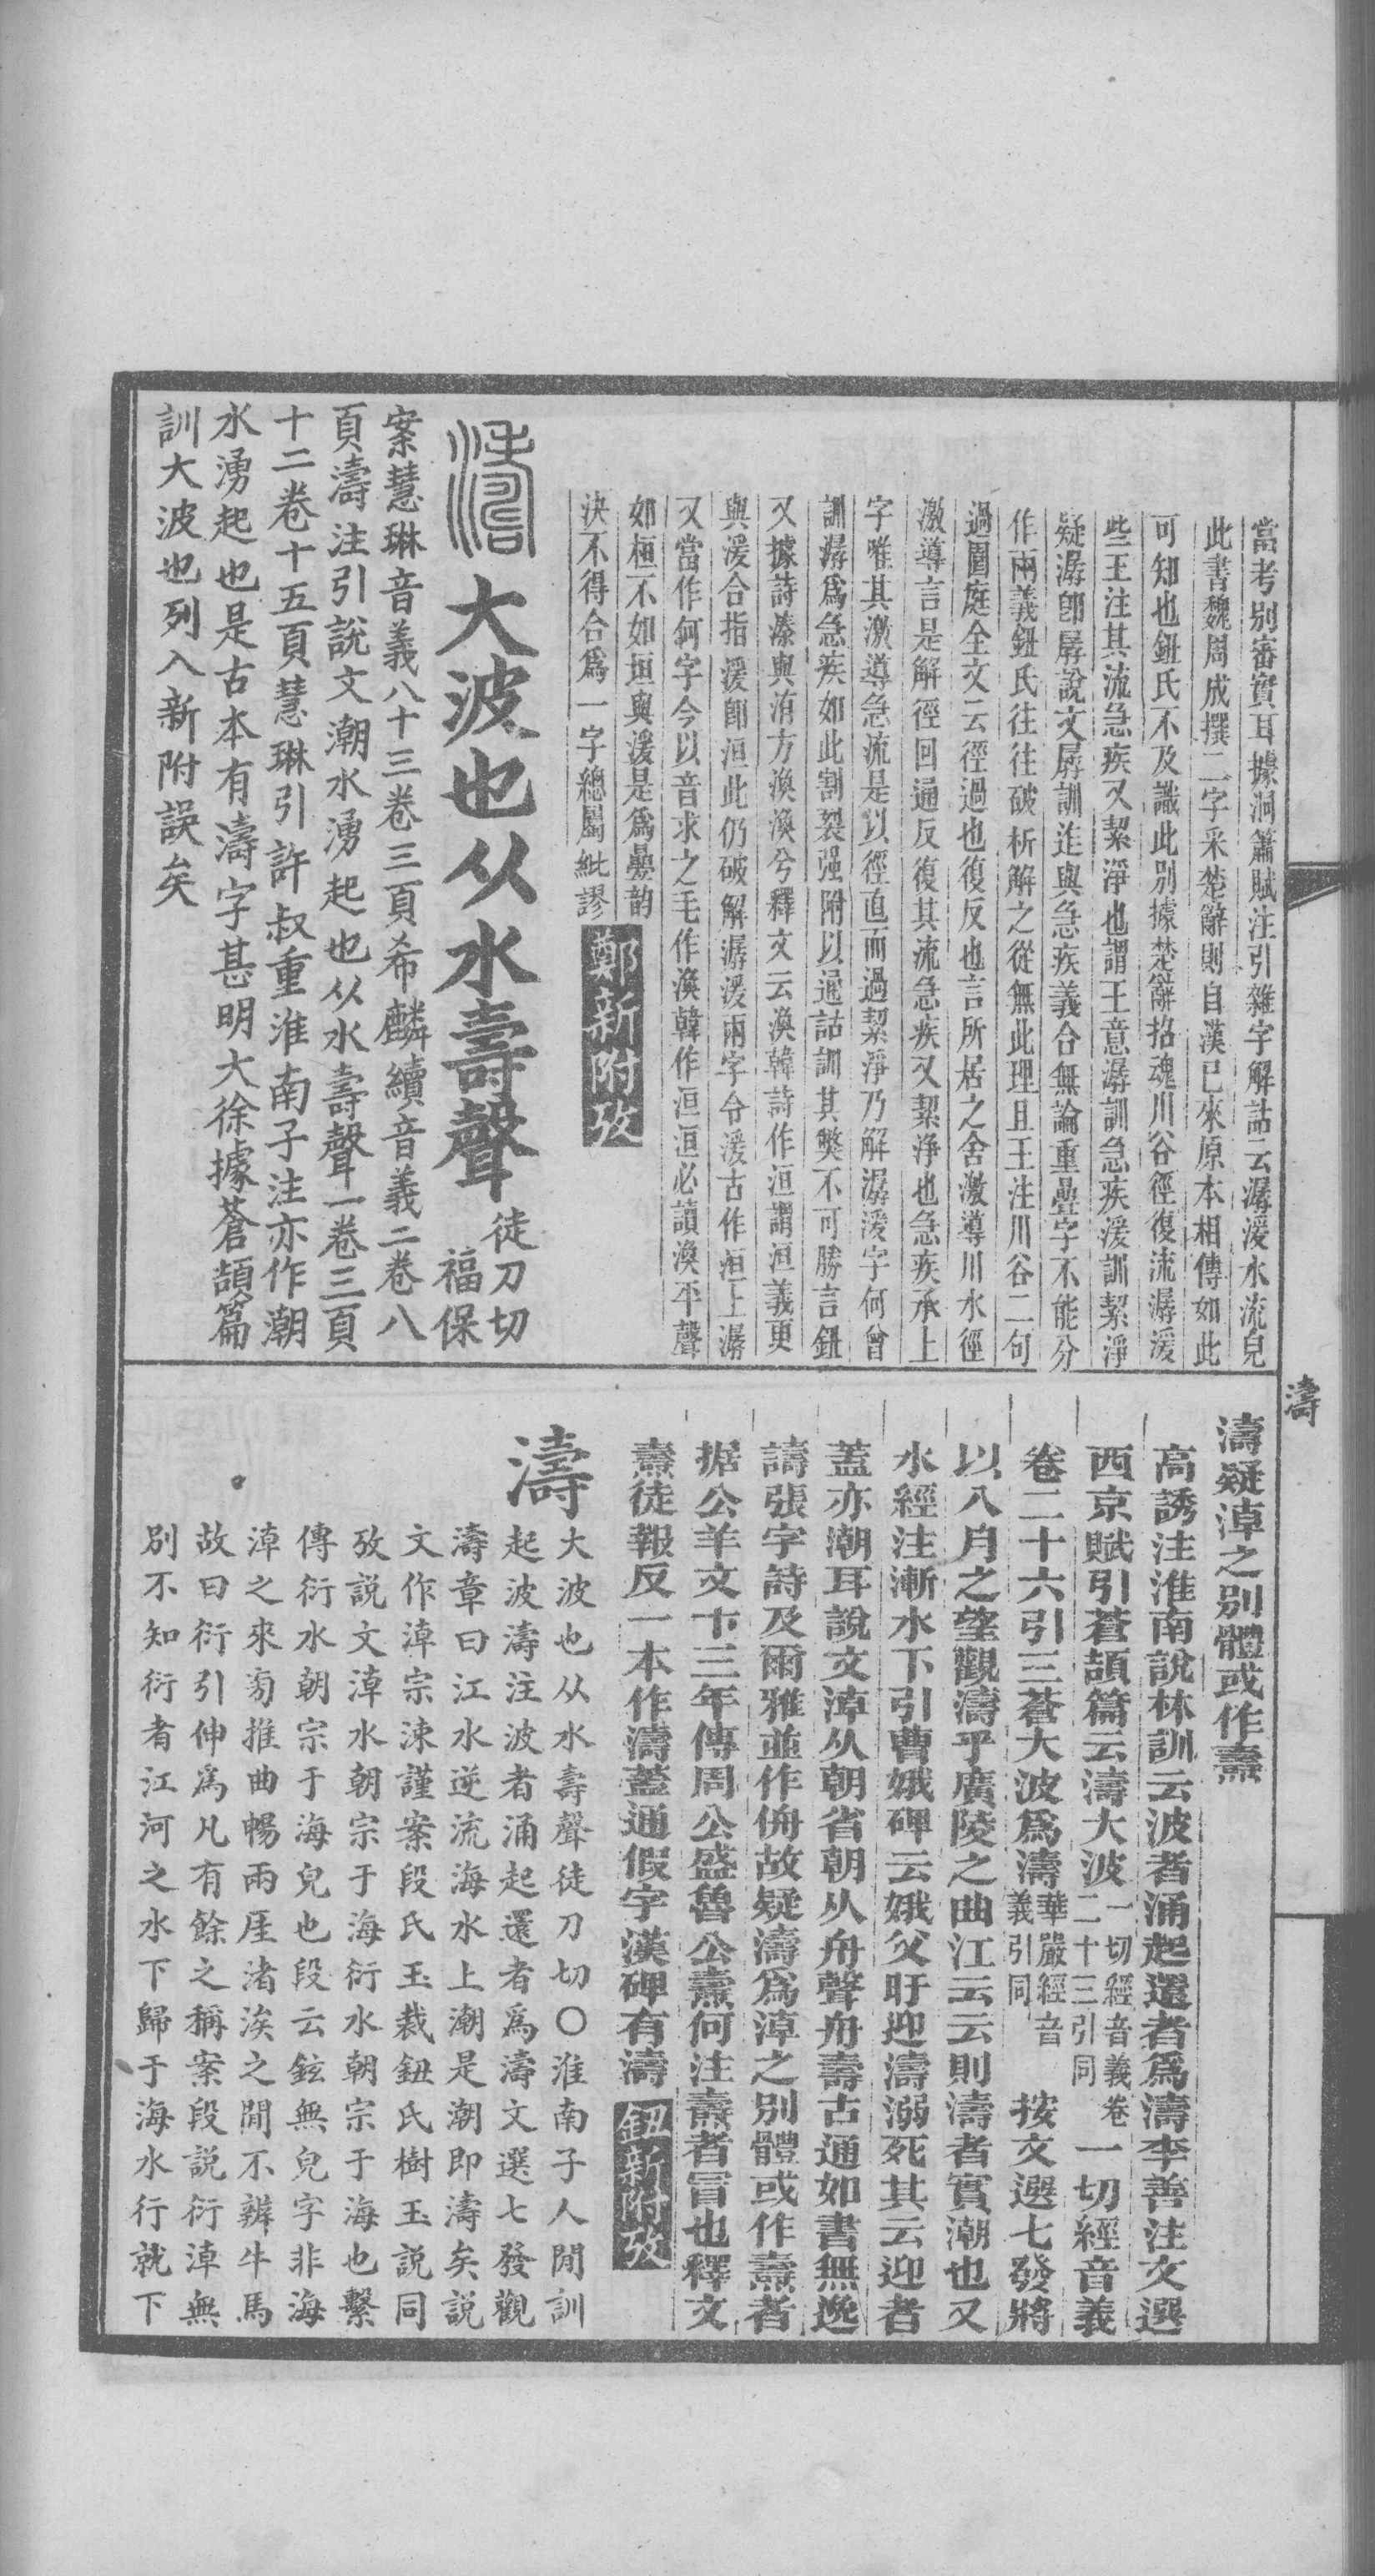 當考別審實耳據洞簫賦注引雜字解詁云潺湲水流皃
此書魏周成撰二字采楚辭則自漢已來原本相傳如此
可知也鈕氏不及識此別據楚辭招魂川谷徑復流潺湲
些王注其流急疾又絜淨也謂王意潺訓急疾湲訓絜淨
疑潺卽孱說文孱訓迮與急疾義合無論重疊字不能分
作兩義鈕氏往往破析解之從無此理且王注川谷二句
過園庭全文云徑過也復反也言所居之舍激導川水徑
激導言是解徑回通反復其流急疾又絜淨也急疾承上
字唯其激導急流是以徑直而過絜淨乃解潺湲字何曾
訓潺爲急疾如此割裂强附以通詁訓其獘不可勝言鈕
又據詩溱與洧方渙渙兮釋文云渙韓詩作洹謂洹義更
與湲合指湲卽洹此仍破解潺湲兩字令湲古作洹上潺
又當作何字今以音求之毛作渙韓作洹洹必讀渙平聲
如桓不如垣與湲是爲疊韵
決不得合爲一字總屬紕謬
鄭新附攷
大波也从水壽聲徒刀切
福保
案慧琳音義八十三卷三頁希麟續音義二卷八
頁濤注引說文潮水湧起也从水壽聲一卷三頁
十二卷十五頁慧琳引許叔重淮南子注亦作潮
水湧起也是古本有濤字甚明大徐據蒼頡篇
訓大波也列入新附誤矣
濤
濤疑淖之別體或作燾
高誘注淮南說林訓云波者涌起還者爲濤李善注文選
西京賦引蒼頡篇云濤大波一切經音義卷二十三引同一切經音義
卷二十六引三蒼大波爲濤華嚴經音義引同按文選七發將
以八月之望觀濤乎廣陵之曲江云云則濤者實潮也又
水經注漸水下引曹娥碑云娥父旴迎濤溺死其云迎者
蓋亦潮耳說文淖从朝省朝从舟聲舟壽古通如書無逸
譸張字詩及爾雅並作侜故疑濤爲淖之別體或作燾者
据公羊文十三年傳周公盛魯公燾何注燾者冒也釋文
燾徒報反一本作濤蓋通假字漢碑有濤
鈕新附攷
濤
大波也从水壽聲徒刀切〇淮南子人閒訓
起波濤注波者涌起還者爲濤文選七發觀
濤章曰江水逆流海水上潮是潮即濤矣説
文作淖宗涑謹案段氏玉裁鈕氏樹玉説同
攷説文淖水朝宗于海衍水朝宗于海也繫
傳衍水朝宗于海皃也段云鉉無皃字非海
淖之來旁推曲暢兩厓渚涘之閒不辨牛馬
故曰衍引伸爲凡有餘之稱案段説衍淖無
別不知衍者江河之水下歸于海水行就下